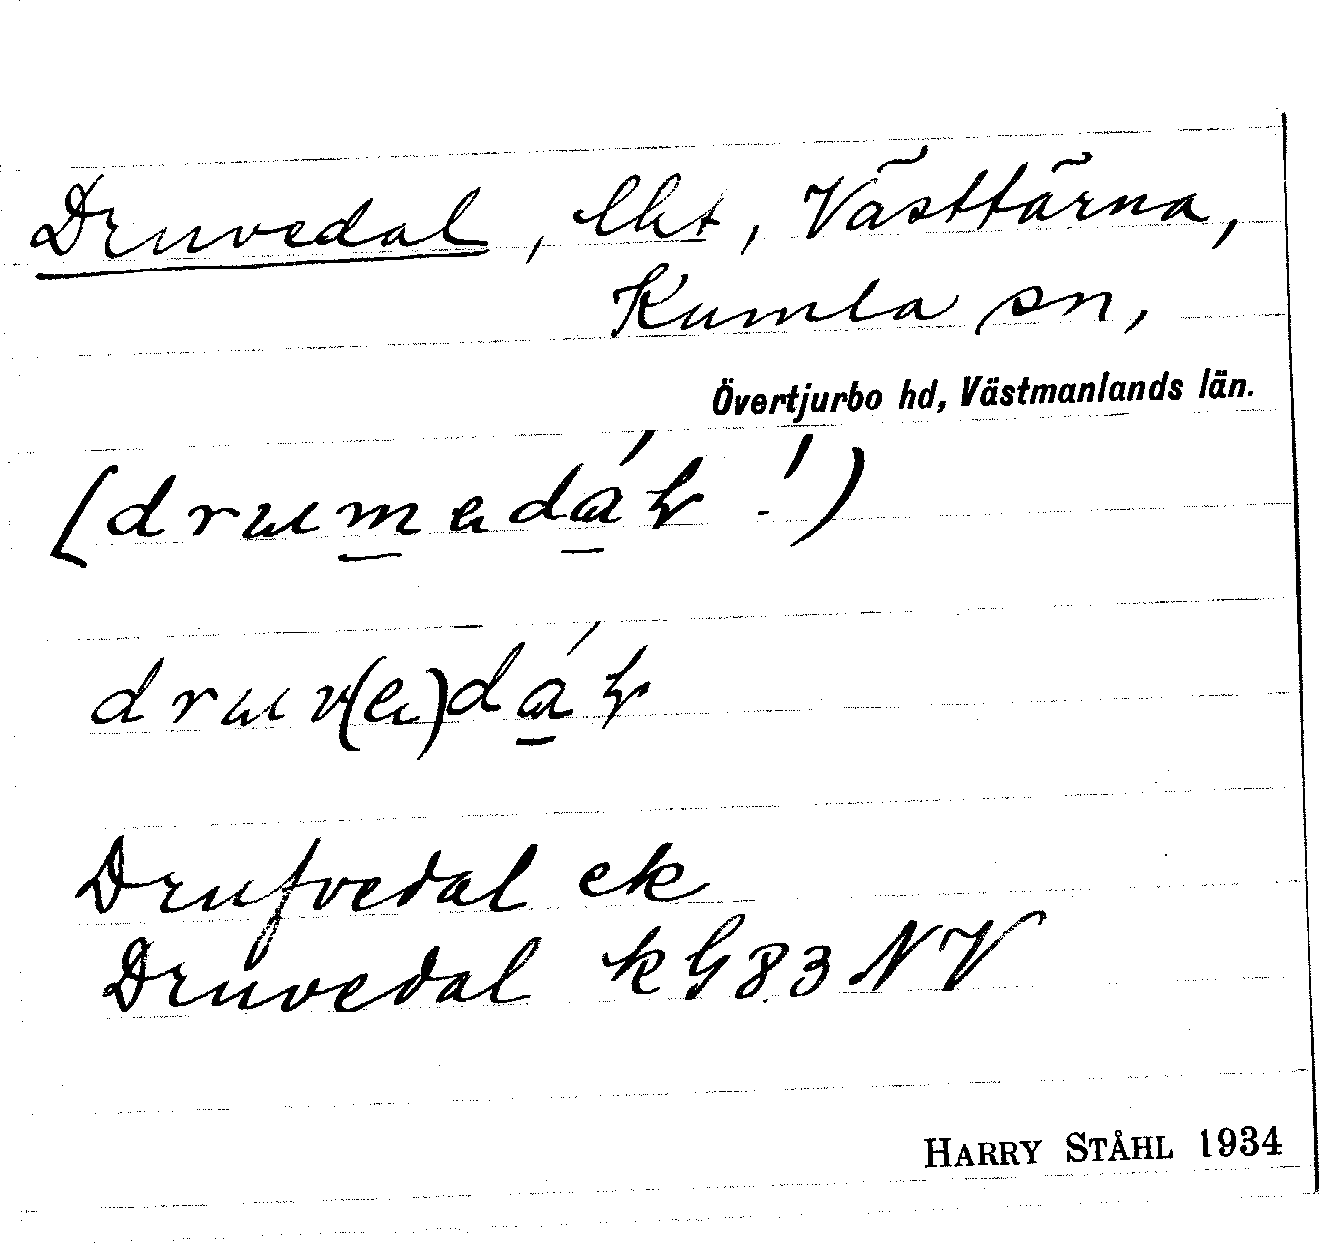 Druvedal, lht, Västtärna,
Kumla sn,
Övertjurbo hd, Västmanlands län.
Drufvedal ek
Druvedal kG83NV
HARRY STÅHL 1934